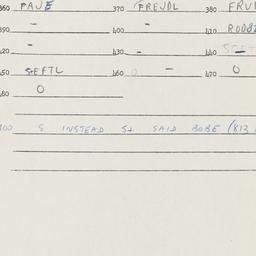 360 PAJE 370 FREJDL 380 FRU
390 - 400 - 410 RODB
420 - 430 - 440
450 SEFTL 460 O - 470 O
480 O
S INSTEAD S+ SAID BOBE (813